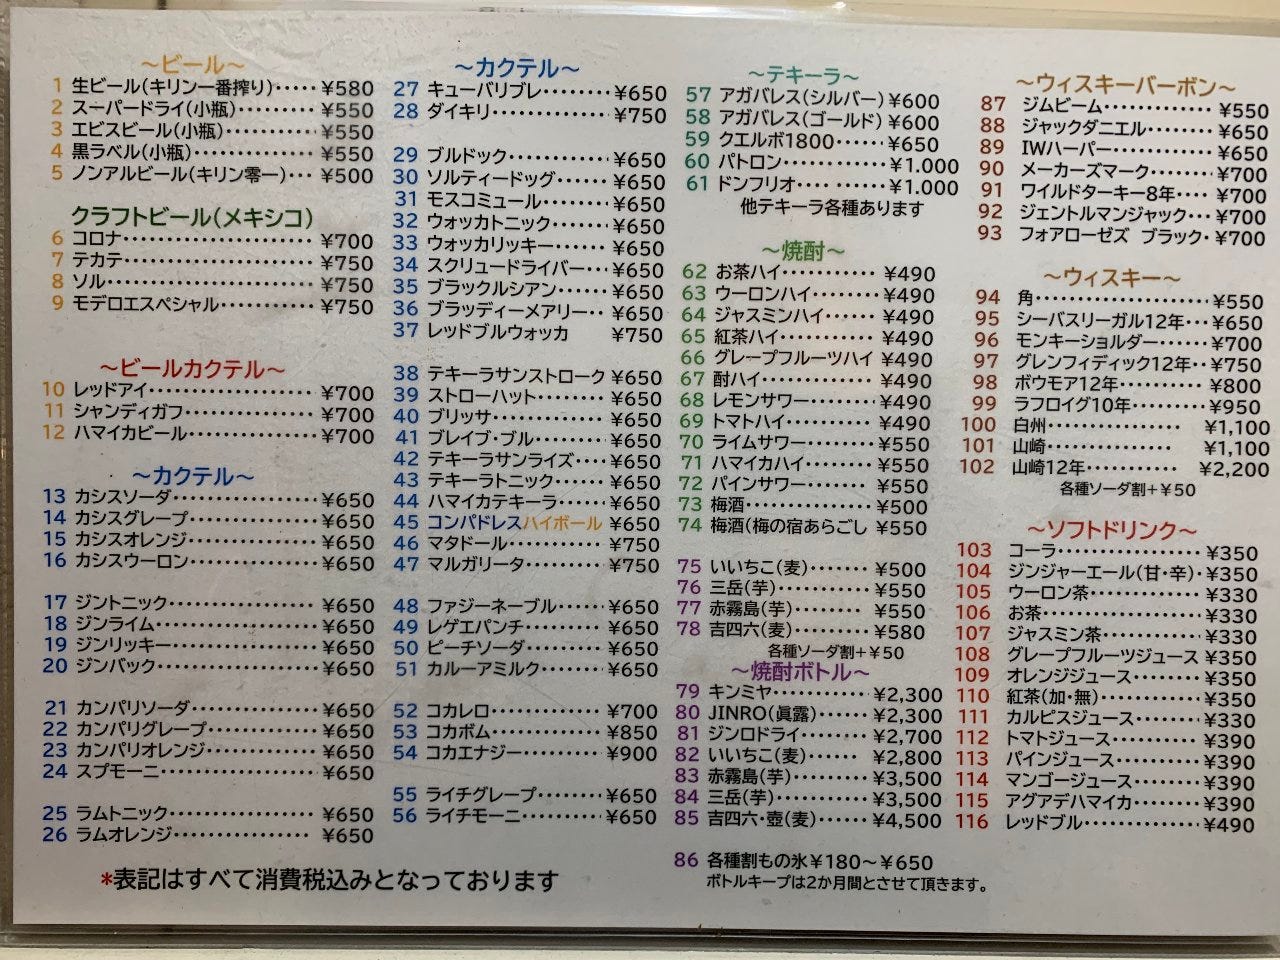 ～ビール～
1 生ビール(キリン一番搾り)･････¥580
2 スーパードライ(小瓶)･･･････････¥550
3 エビスビール(小瓶)････････････¥550
4 黒ラベル(小瓶)･･････････････¥550
5 ノンアルビール(キリン零一)･･･¥500
クラフトビール(メキシコ)
6 コロナ･･････････････････････¥700
7 テカテ･･････････････････････¥750
8 ソル････････････････････････¥750
9 モデロエスペシャル･･･････････¥750
～ビールカクテル～
10 レッドアイ･･････････････････¥700
11 シャンディガフ･･････････････¥700
12 ハマイカビール･･････････････¥700
～カクテル～
13 カシスソーダ････････････････¥650
14 カシスグレープ･･････････････¥650
15 カシスオレンジ･･････････････¥650
16 カシスウーロン･･････････････¥650
17 ジントニック････････････････¥650
18 ジンライム･･････････････････¥650
19 ジンリッキー････････････････¥650
20 ジンバック･･････････････････¥650
21 カンパリソーダ･･････････････¥650
22 カンパリグレープ････････････¥650
23 カンパリオレンジ････････････¥650
24 スプモーニ･･････････････････¥650
25 ラムトニック････････････････¥650
26 ラムオレンジ････････････････¥650
*表記はすべて消費税込みとなっております
～カクテル～
27 キューバリブレ･････････¥650
28 ダイキリ･･････････････¥750
29 ブルドック････････････¥650
30 ソルティードッグ･･･････¥650
31 モスコミュール････････¥650
32 ウォッカトニック･･･････¥650
33 ウォッカリッキー･･･････¥650
34 スクリュードライバー･･･¥650
35 ブラックルシアン･･･････¥650
36 ブラッディーメアリー･･¥650
37 レッドブルウォッカ ¥750
38 テキーラサンストローク ¥650
39 ストローハット････････¥650
40 ブリッサ･････････････¥650
41 ブレイブ･ブル････････¥650
42 テキーラサンライズ････¥650
43 テキーラトニック･･････¥650
44 ハマイカテキーラ･･････¥650
45 コンパドレスハイボール ¥650
46 マタドール･･････････¥750
47 マルガリータ････････¥750
48 ファジーネーブル･･････¥650
49 レゲエパンチ････････¥650
50 ピーチソーダ････････¥650
51 カルーアミルク･･･････¥650
52 コカレロ････････････¥700
53 コカボム････････････¥850
54 コカエナジー････････¥900
55 ライチグレープ･･･････¥650
56 ライチモーニ････････¥650
～テキーラ～
57 アガバレス(シルバー)¥600
58 アガバレス(ゴールド)¥600
59 クエルボ1800･･････¥650
60 パトロン･･････････¥1.000
61 ドンフリオ････ ･･････¥1.000
他テキーラ各種あります
～焼酎～
62 お茶ハイ･･････････¥490
63 ウーロンハイ･･･････¥490
64 ジャスミンハイ･･････¥490
65 紅茶ハイ･･････････¥490
66 グレープフルーツハイ ¥490
67 酎ハイ････････････¥490
68 レモンサワー･･･････¥490
69 トマトハイ･････････¥490
70 ライムサワー･･･････¥550
71 ハマイカハイ･･･････¥550
72 パインサワー･･･････¥550
73 梅酒･････････････¥500
74 梅酒(梅の宿あらごし ¥550
75 いいちこ(麦)･･･････¥500
76 三岳(芋)･････････¥550
77 赤霧島(芋)･･･････¥550
78 吉四六(麦)･･･････¥580
各種ソーダ割+¥50
～焼酎ボトル～
79 キンミヤ･･････････¥2,300
80 JINRO(眞露)･･････¥2,300
81 ジンロドライ･･･････¥2,700
82 いいちこ(麦)･･････¥2,800
83 赤霧島(芋)････････¥3,500
84 三岳(芋)･････････¥3,500
85 吉四六･壺(麦)･････¥4,500
86 各種割もの氷¥180～¥650
ボトルキープは2か月間とさせて頂きます。
～ウィスキーバーボン～
87 ジムビーム･････････････¥550
88 ジャックダニエル････････¥650
89 IWハーパー･････････････¥650
90 メーカーズマーク････････¥700
91 ワイルドターキー8年････¥700
92 ジェントルマンジャック･･･¥700
93 フォアローゼズ ブラック･¥700
～ウィスキー～
94 角････････････････････¥550
95 シーバスリーガル12年･･･¥650
96 モンキーショルダー･･････¥700
97 グレンフィディック12年･･¥750
98 ボウモア12年･･････････¥800
99 ラフロイグ10年･････････¥950
100 白州･･･････････････¥1,100
101 山崎･･････････････¥1,100
102 山崎12年･･･････････¥2,200
各種ソーダ割+¥50
～ソフトドリンク～
103 コーラ････････････････¥350
104 ジンジャーエール(甘･辛)･¥350
105 ウーロン茶･････････････¥330
106 お茶･･････････････････¥330
107 ジャスミン茶････････････¥330
108 グレープフルーツジュース ¥350
109 オレンジジュース････････¥350
110 紅茶(加･無)････････････¥350
111 カルピスジュース････････¥330
112 トマトジュース･･････････¥390
113 パインジュース･･････････¥390
114 マンゴージュース････････¥390
115 アグアデハマイカ････････¥390
116 レッドブル･････････････¥490